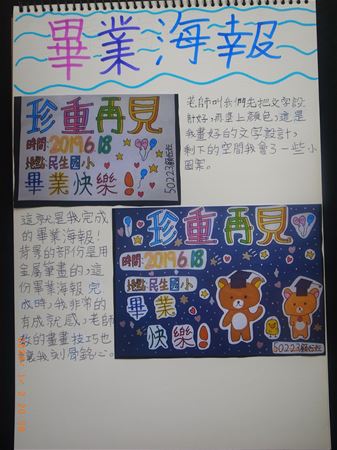 畢業海報
珍重再見
時間:2019.6.18
地點:民生國小
畢業快樂!!
老師叫我們先把文字設
計好,再塗上顏色,這是
我畫好的文字設計,
剩下的空間我會了一些小
圖案。
這就是我完成
的畢業海報!
背景的部份是用
金屬筆畫的,這
份畢業海報完
成時,我非常的
有成就感,老師
教的畫畫技巧也
讓我刻骨銘心。
珍重再見
時間:2019.6.18
地點:民生國小
畢業
快樂!!